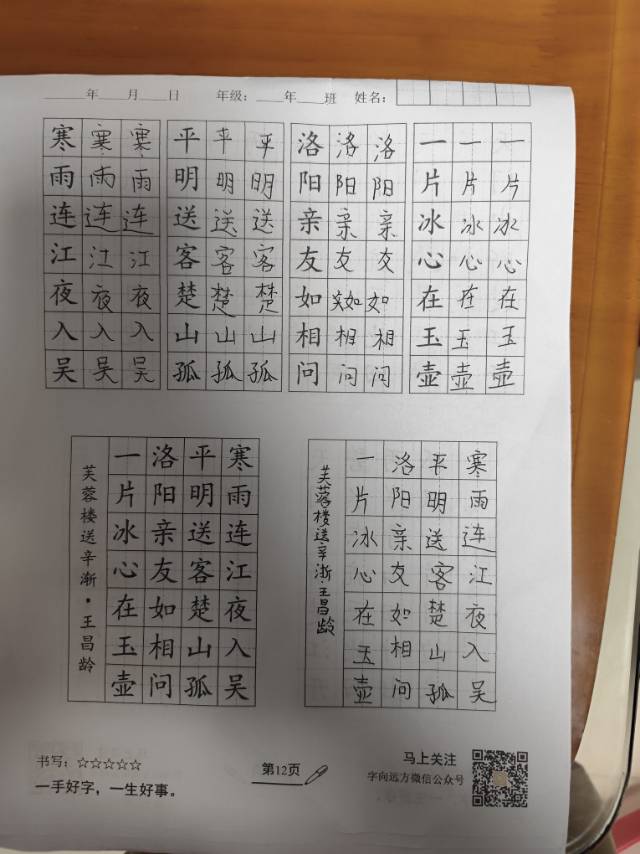 ____年____月____日 年级：____年____班 姓名：
寒寒寒 平平平 洛洛洛 一一一
雨雨雨 明明明 阳阳阳 片片片
连连连 送送送 亲亲亲 冰冰冰
江江江 客客客 友友友 心心心
夜夜夜 楚楚楚 如如如 在在在
入入入 山山山 相相相 玉玉玉
吴吴吴 孤孤孤 问问问 壶壶壶
寒雨连江夜入吴
平明送客楚山孤
洛阳亲友如相问
一片冰心在玉壶
芙蓉楼送辛渐·王昌龄
寒雨连江夜入吴
平明送客楚山孤
洛阳亲友如相问
一片冰心在玉壶
芙蓉楼送辛渐·王昌龄
书写：☆☆☆☆☆
一手好字，一生好事。
第12页
马上关注
字向远方微信公众号